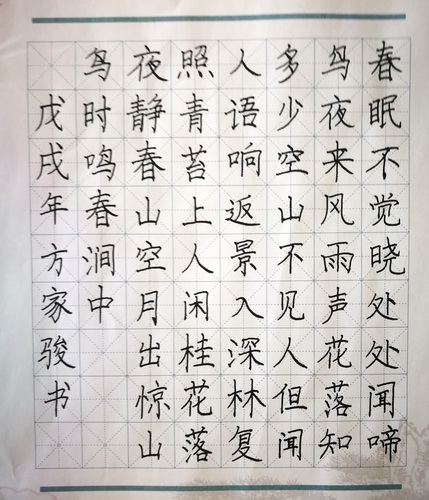 春眠不觉晓处处闻啼
鸟夜来风雨声花落知
多少空山不见人但闻
人语响返景入深林复
照青苔上人闲桂花落
夜静春山空月出惊山
鸟时鸣春涧中
戊戌年方家骏书